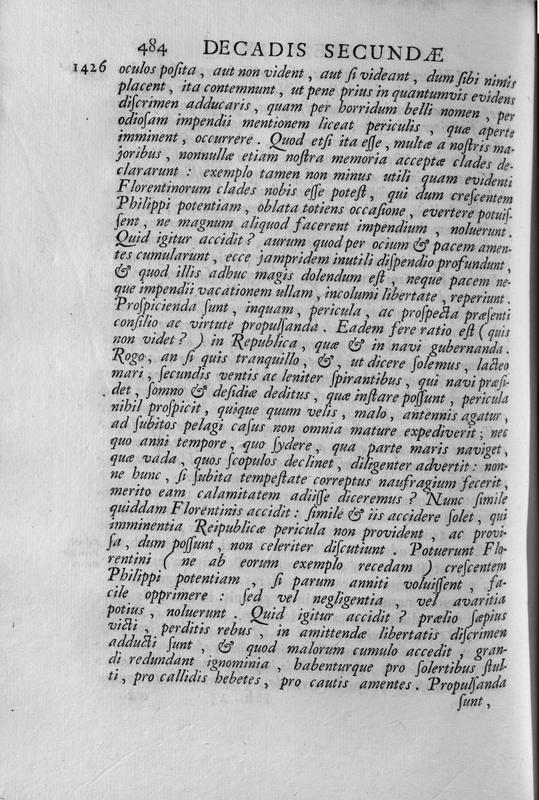 484 DECADIS SECUNDÆ
1426 oculos posita, aut non vident, aut si videant, dum sibi nimis
placent, ita contemnunt, ut pene prius in quantumvis evidens
discrimen adducaris, quam per horridum belli nomen, per
odiosam impendii mentionem liceat periculis, quæ aperte
imminent, occurrere. Quod etsi ita esse, multæ a nostris ma-
joribus, nonnullæ etiam nostra memoria acceptæ clades de-
clararunt: exemplo tamen non minus utili quam evidenti
Florentinorum clades nobis esse potest, qui dum crescentem
Philippi potentiam, oblata toties occasione, evertere potuis-
sent, ne magnum aliquod facerent impendium, noluerunt.
Quid igitur accidit? aurum quod per ocium & pacem amen-
tes cumularunt, ecce jampridem inutili dispendio profundunt,
& quod illis adhuc magis dolendum est, neque pacem ne-
que impendii vacationem ullam, incolumi libertate, reperiunt.
Prospicienda sunt, inquam, pericula, ac prospecta præsenti
consilio ac virtute propulsanda. Eadem fere ratio est (quis
non videt?) in Republica, quæ & in navi gubernanda.
Rogo, an si quis tranquillo, &, ut dicere solemus, lacteo
mari, secundis ventis ac leniter spirantibus, qui navi præsi-
det, somno & desidiæ deditus, quæ instare possunt, pericula
nihil prospicit, quique quum velis, malo, antennis agatur,
ad subitos pelagi casus non omnia mature expediverit; nec
quo anni tempore, quo sydere, qua parte maris naviget,
quæ vada, quos scopulos declinet, diligenter advertit: non-
ne hunc, si subita tempestate correptus naufragium fecerit,
merito eam calamitatem adiisse diceremus? Nunc simile
quiddam Florentinis accidit: simile & iis accidere solet, qui
imminentia Reipublicæ pericula non provident, ac provi-
sa, dum possunt, non celeriter discutiunt. Potuerunt Flo-
rentini (ne ab eorum exemplo recedam) crescentem
Philippi potentiam, si parum anniti voluissent, fa-
cile opprimere: sed vel negligentia, vel avaritia
potius, noluerunt. Quid igitur accidit? prælio sæpius
victi, perditis rebus, in amittendæ libertatis discrimen
adducti sunt, & quod malorum cumulo accedit, gran-
di redundant ignominia, habenturque pro solertibus stul-
ti, pro callidis hebetes, pro cautis amentes. Propulsanda
sunt,